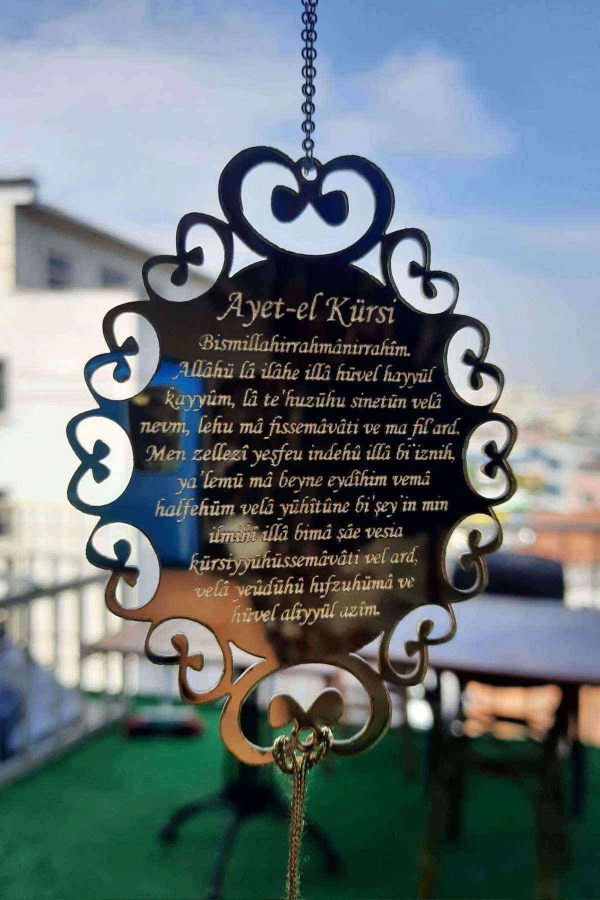 Ayet-el Kürsi
Bismillahirrahmânirrahîm.
Allâhü lâ ilâhe illâ hüvel hayyül
kayyûm, lâ te'huzühu sinetün velâ
nevm, lehu mâ fissemâvâti ve ma fil'ard.
Men zellezî yeşfeu indehû illâ bi'iznih,
ya'lemü mâ beyne eydîhim vemâ
halfehüm velâ yühîtûne bi'şey'in min
ilmihî illâ bimâ şâe vesia
kürsiyyühüssemâvâti vel ard,
velâ yeûdühû hıfzuhümâ ve
hüvel aliyyül azîm.